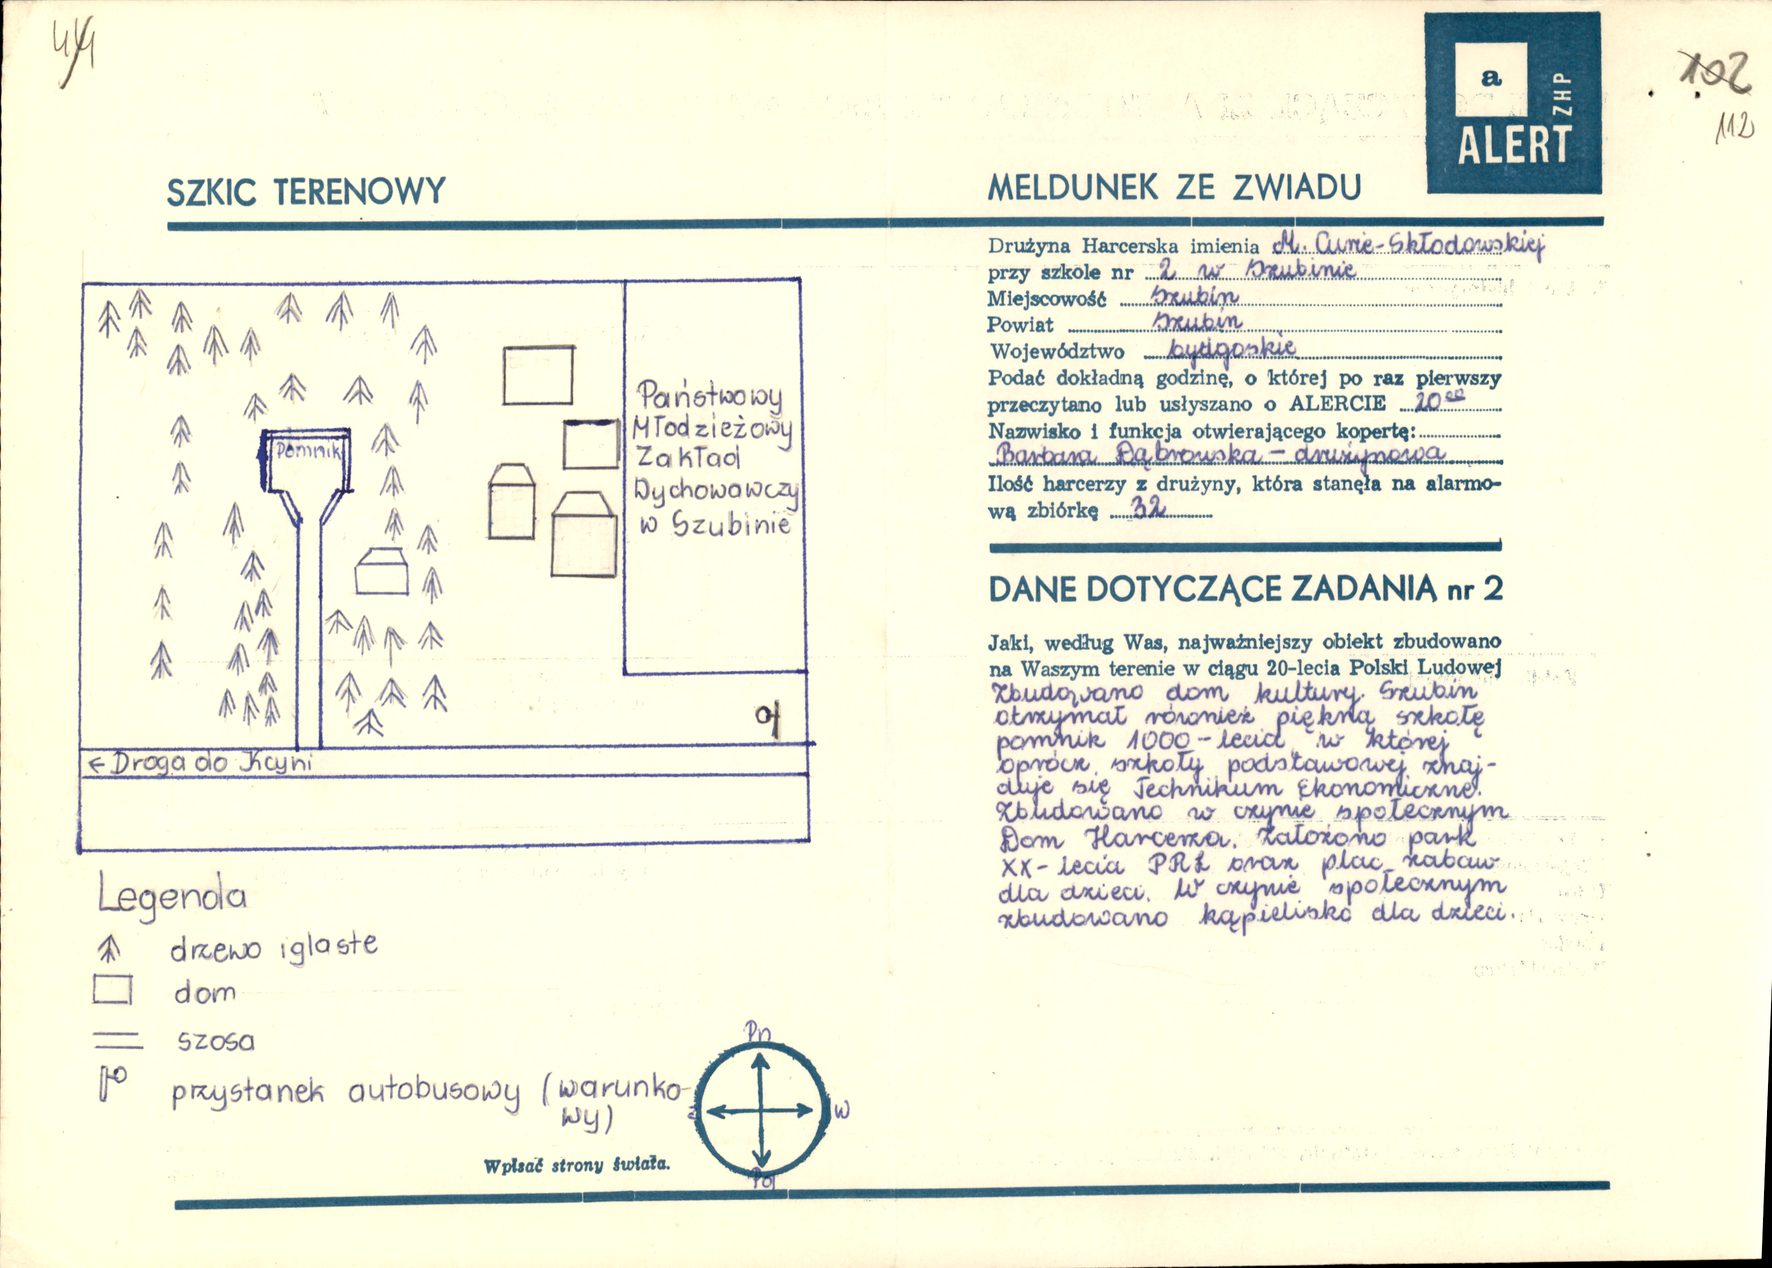 44
a
ZHP
ALERT
102
112
SZKIC TERENOWY
Pomnik
Państwowy
Młodzieżowy
Zakład
Wychowawczy
w Szubinie
← Droga do Kcyni
Legenda
drzewo iglaste
dom
szosa
przystanek autobusowy (warunko-
wy)
Wpisać strony świata.
Pn
Z
W
Pd
MELDUNEK ZE ZWIADU
Drużyna Harcerska imienia M. Curie-Skłodowskiej
przy szkole nr 2 w Szubinie
Miejscowość Szubin
Powiat Szubin
Województwo bydgoskie
Podać dokładną godzinę, o której po raz pierwszy
przeczytano lub usłyszano o ALERCIE 20⁰⁰
Nazwisko i funkcja otwierającego kopertę:
Barbara Dąbrowska - drużynowa
Ilość harcerzy z drużyny, która stanęła na alarmo-
wą zbiórkę 32
DANE DOTYCZĄCE ZADANIA nr 2
Jaki, według Was, najważniejszy obiekt zbudowano
na Waszym terenie w ciągu 20-lecia Polski Ludowej
Zbudowano dom kultury. Szubin
otrzymał również piękną szkołę
pomnik 1000-lecia, w której
oprócz szkoły podstawowej znaj-
duje się Technikum Ekonomiczne.
Zbudowano w czynie społecznym
Dom Harcerza. Założono park
XX-lecia PRL oraz plac zabaw
dla dzieci. W czynie społecznym
zbudowano kąpielisko dla dzieci.